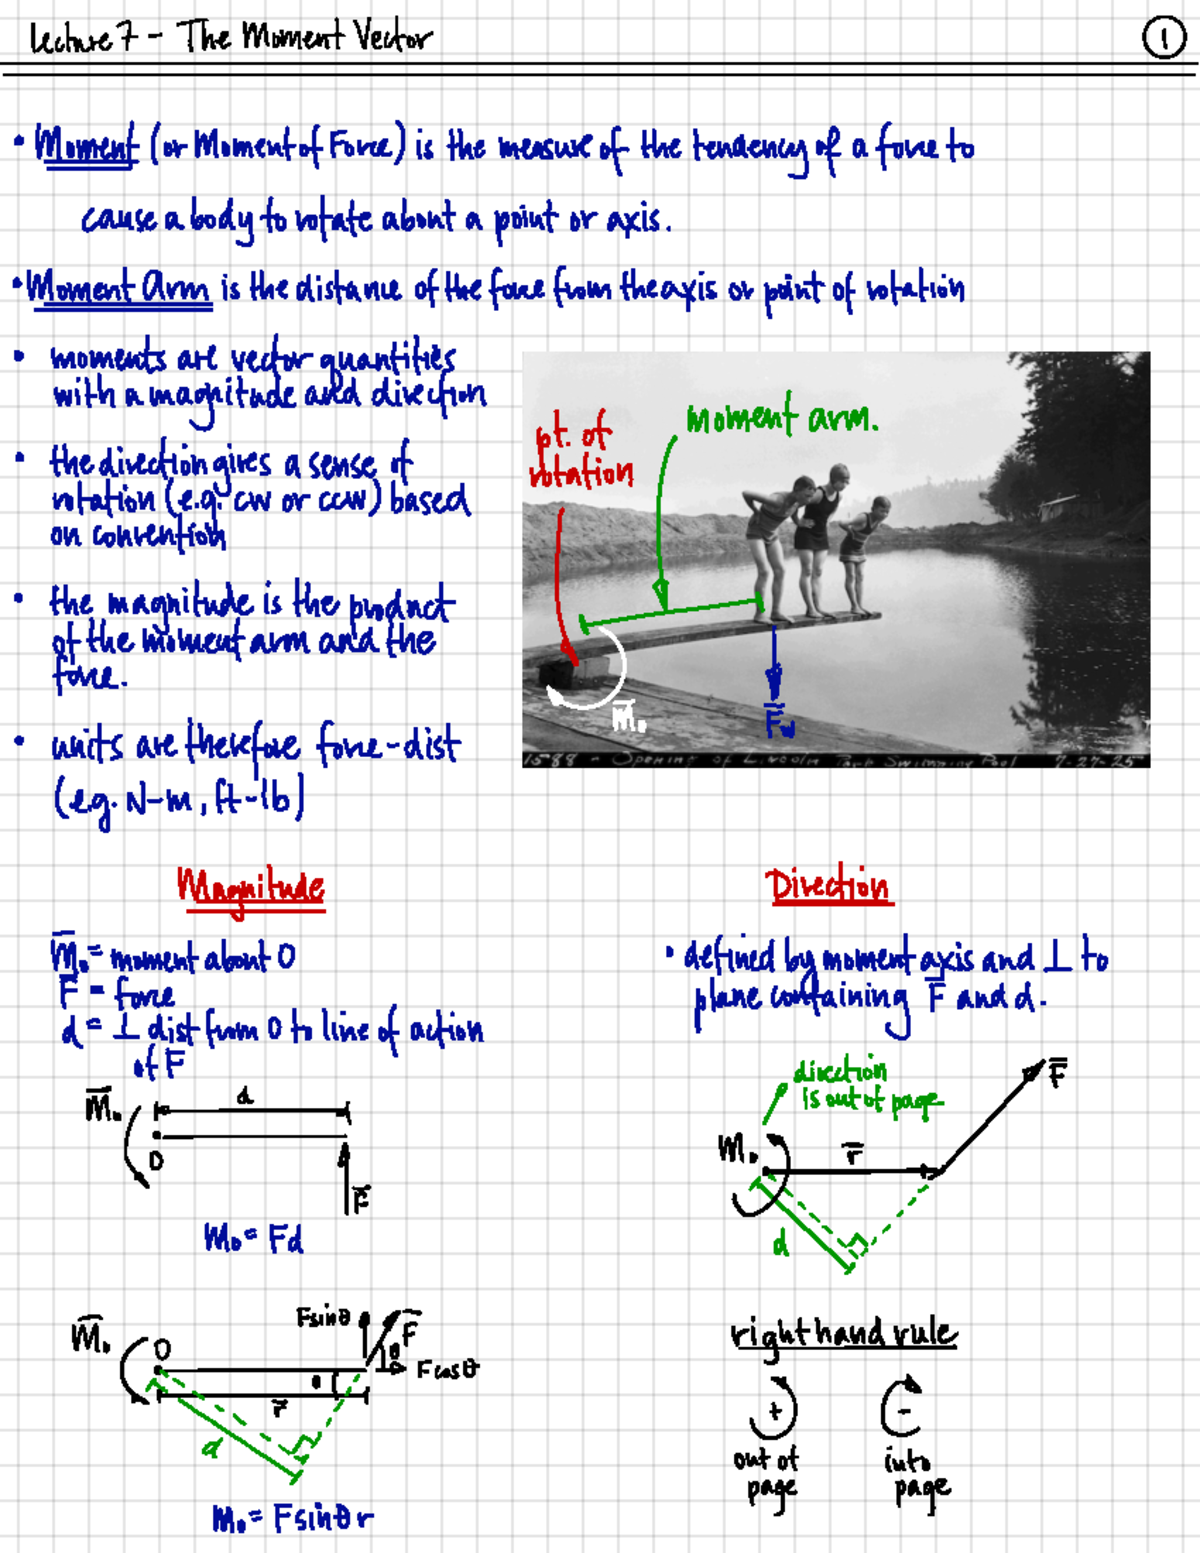 Lecture 7 - The Moment Vector
1
• Moment (or Moment of Force) is the measure of the tendency of a force to
cause a body to rotate about a point or axis.
• Moment Arm is the distance of the force from the axis or point of rotation
• moments are vector quantities
with a magnitude and direction
• the direction gives a sense of
rotation (e.g. cw or ccw) based
on convention
• the magnitude is the product
of the moment arm and the
force.
• units are therefore force-dist
(eg. N-m, ft-lb)
pt. of
rotation
moment arm.
M̄₀
F̄w
1588 - Opening of Lincoln Park Swimming Pool 7-27-25
Magnitude
M̄₀ = moment about O
F̄ = force
d = ⊥ dist from O to line of action
of F
M̄₀
d
O
F̄
M₀ = Fd
M̄₀
O
Fsinθ
F̄
θ
Fcosθ
θ
r̄
d
M₀ = Fsinθ r
Direction
• defined by moment axis and ⊥ to
plane containing F̄ and d.
direction
is out of page
F̄
M₀
r̄
d
right hand rule
+
out of
page
-
into
page